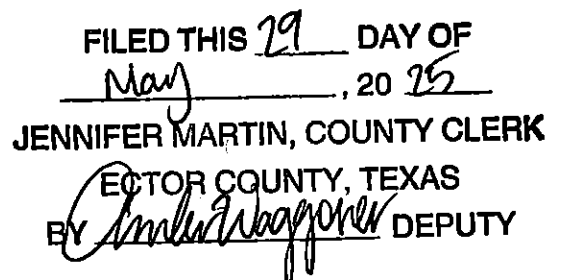 FILED THIS 29 DAY OF
May, 20 25
JENNIFER MARTIN, COUNTY CLERK
ECTOR COUNTY, TEXAS
BY Amber Waggoner DEPUTY